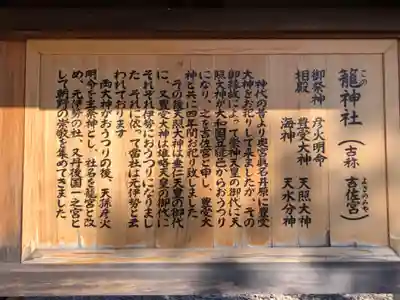 籠神社（古称 吉佐宮）
このじんじゃ
よさのみや
御祭神 彦火明命
相殿 豊受大神 天照大神
海神 天水分神
神代の昔より奥宮眞名井原に豊受
大神をお祀りして来ましたが、その
御縁故によって崇神天皇の御代に天
照大神が大和国笠縫邑からおうつり
になり、之を吉佐宮と申し、豊受大
神と共に四年間お祀り致しました
その後天照大神は垂仁天皇の御代
に、又豊受大神は雄略天皇の御代に
それぞれ伊勢におうつりになりまし
た それに依って當社は元伊勢と云
われております
両大神がおうつりの後、天孫彦火
明命を主祭神とし、社名を籠宮と改
め、元伊勢の社、又丹後国一之宮と
して朝野の崇敬を集めてきました